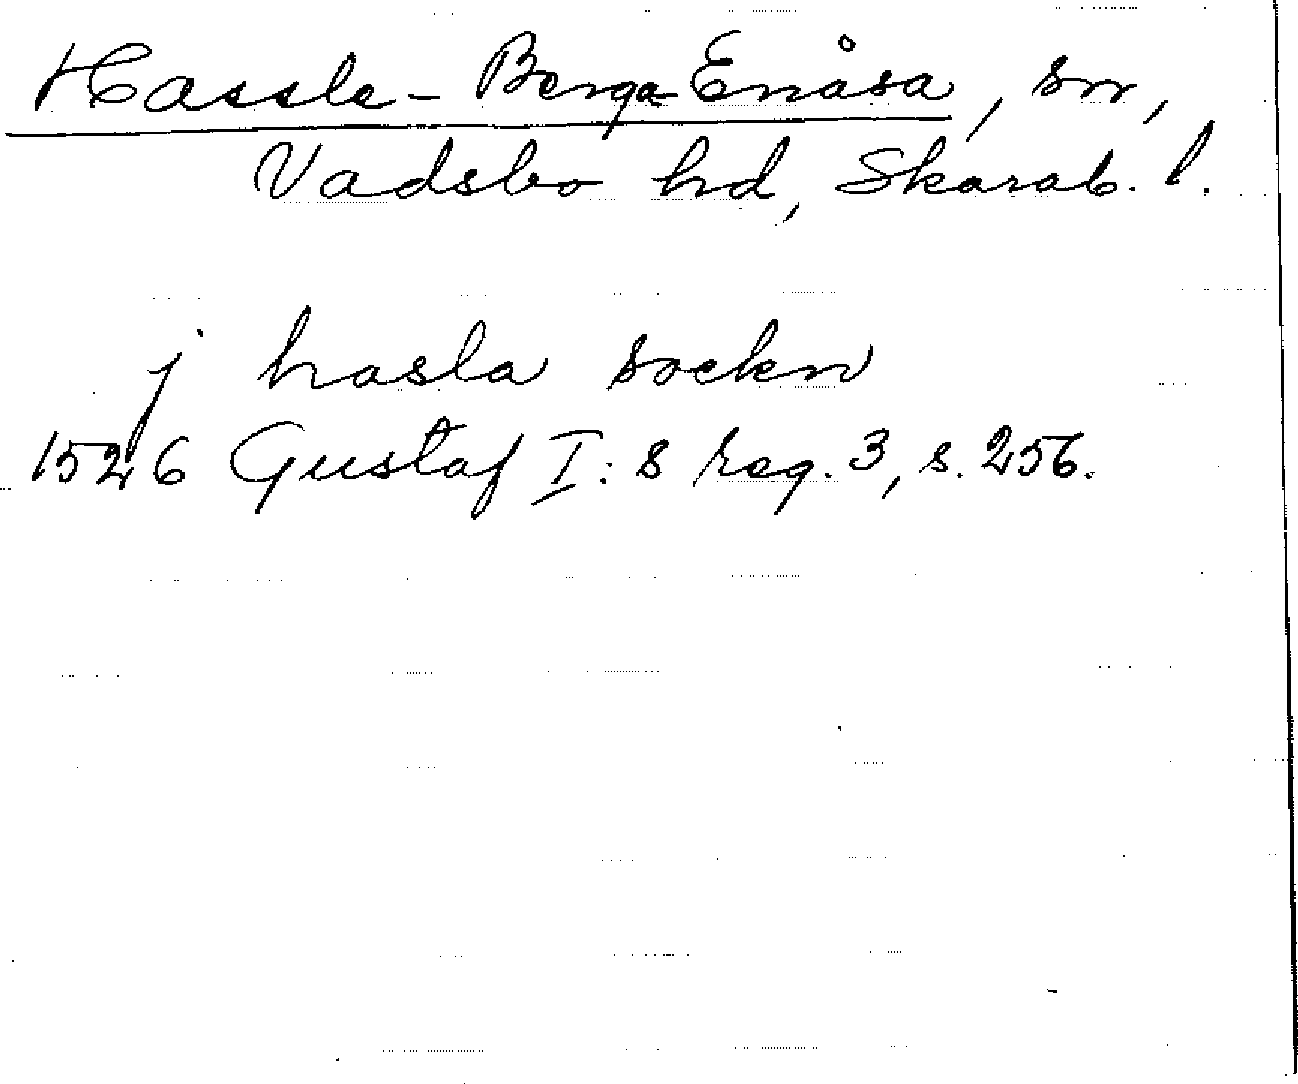 Hassle-Berga-Enåsa, sn,
Vadsbo hd, Skarab. l.
j hasla sockn
1526 Gustaf I:s reg. 3, s. 256.